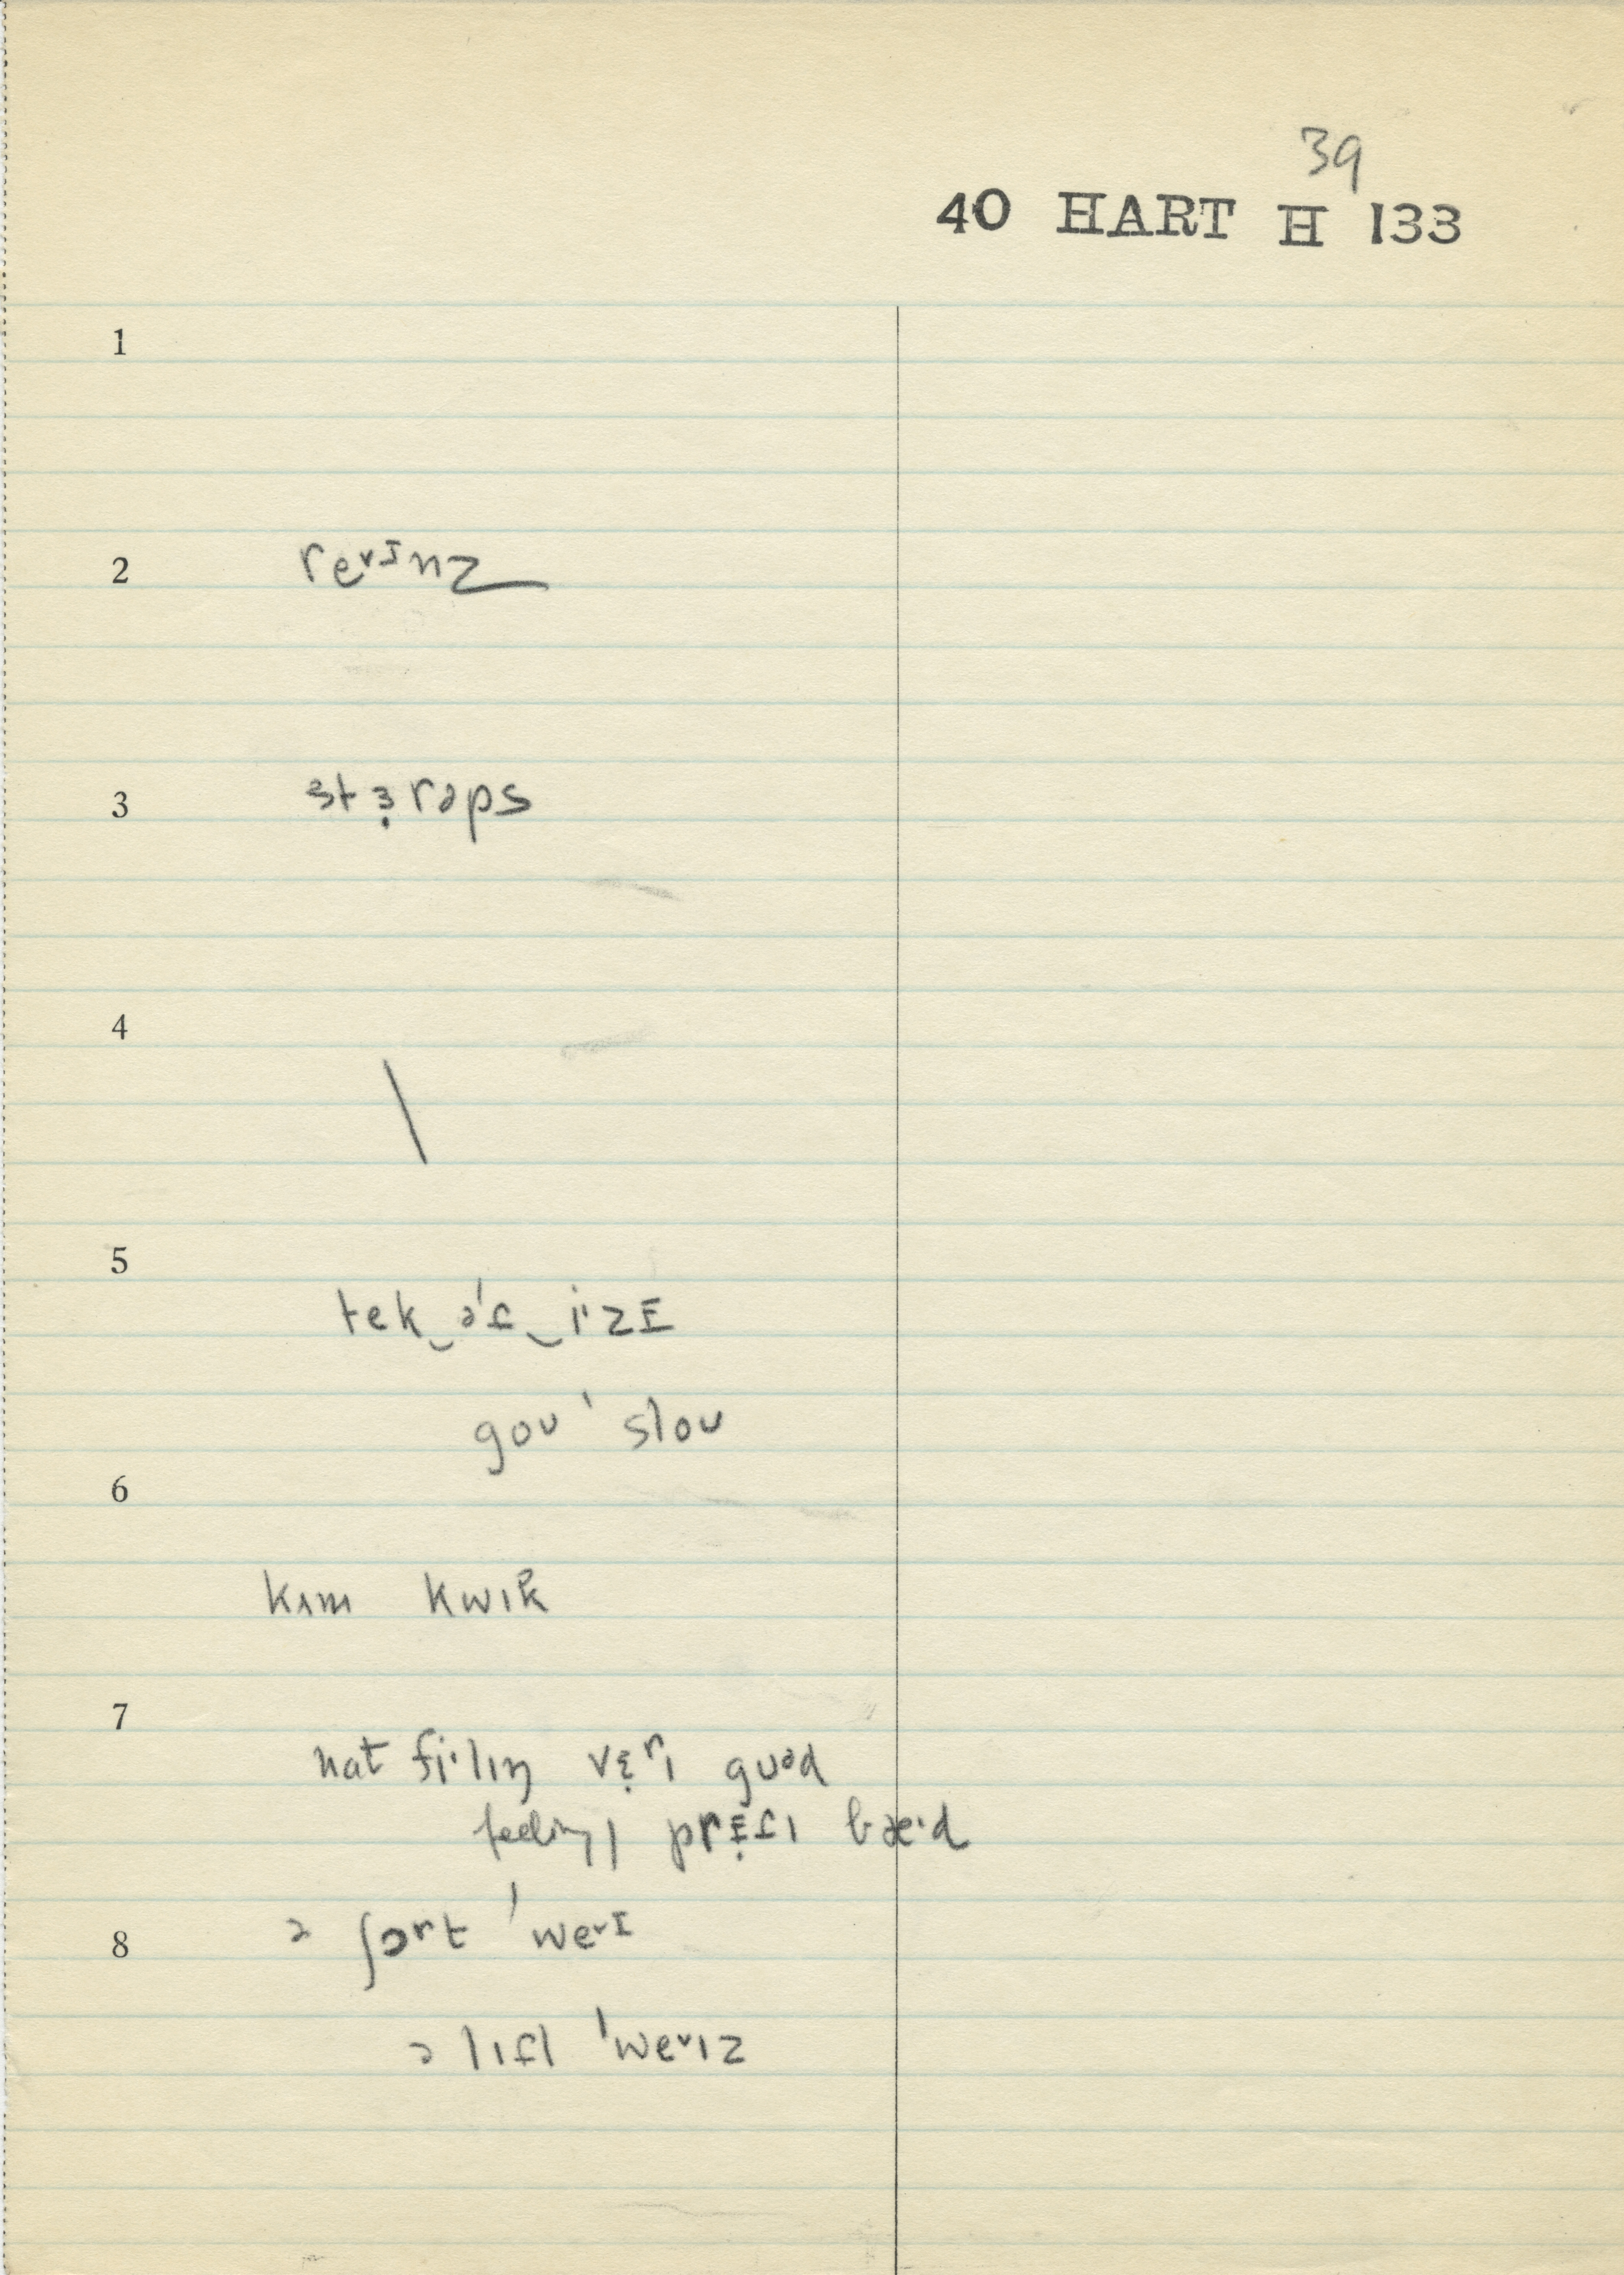 39
40 HART H 133
1
2 reᵛᴵnz
3 stɜ̣rəps
4 \
5 tek‿ə'ɾ‿i·zɪ
goʊ ' sloʊ
6
kʌm kwɪk
7
nat fi·lɪŋ vɛ̣rɪ gʊᵊd
feeling| prɛ̣ɾɪ bæ·d
8 ə ʃɔrt 'weᵛɪ
ə lɪɾl 'weᵛɪz